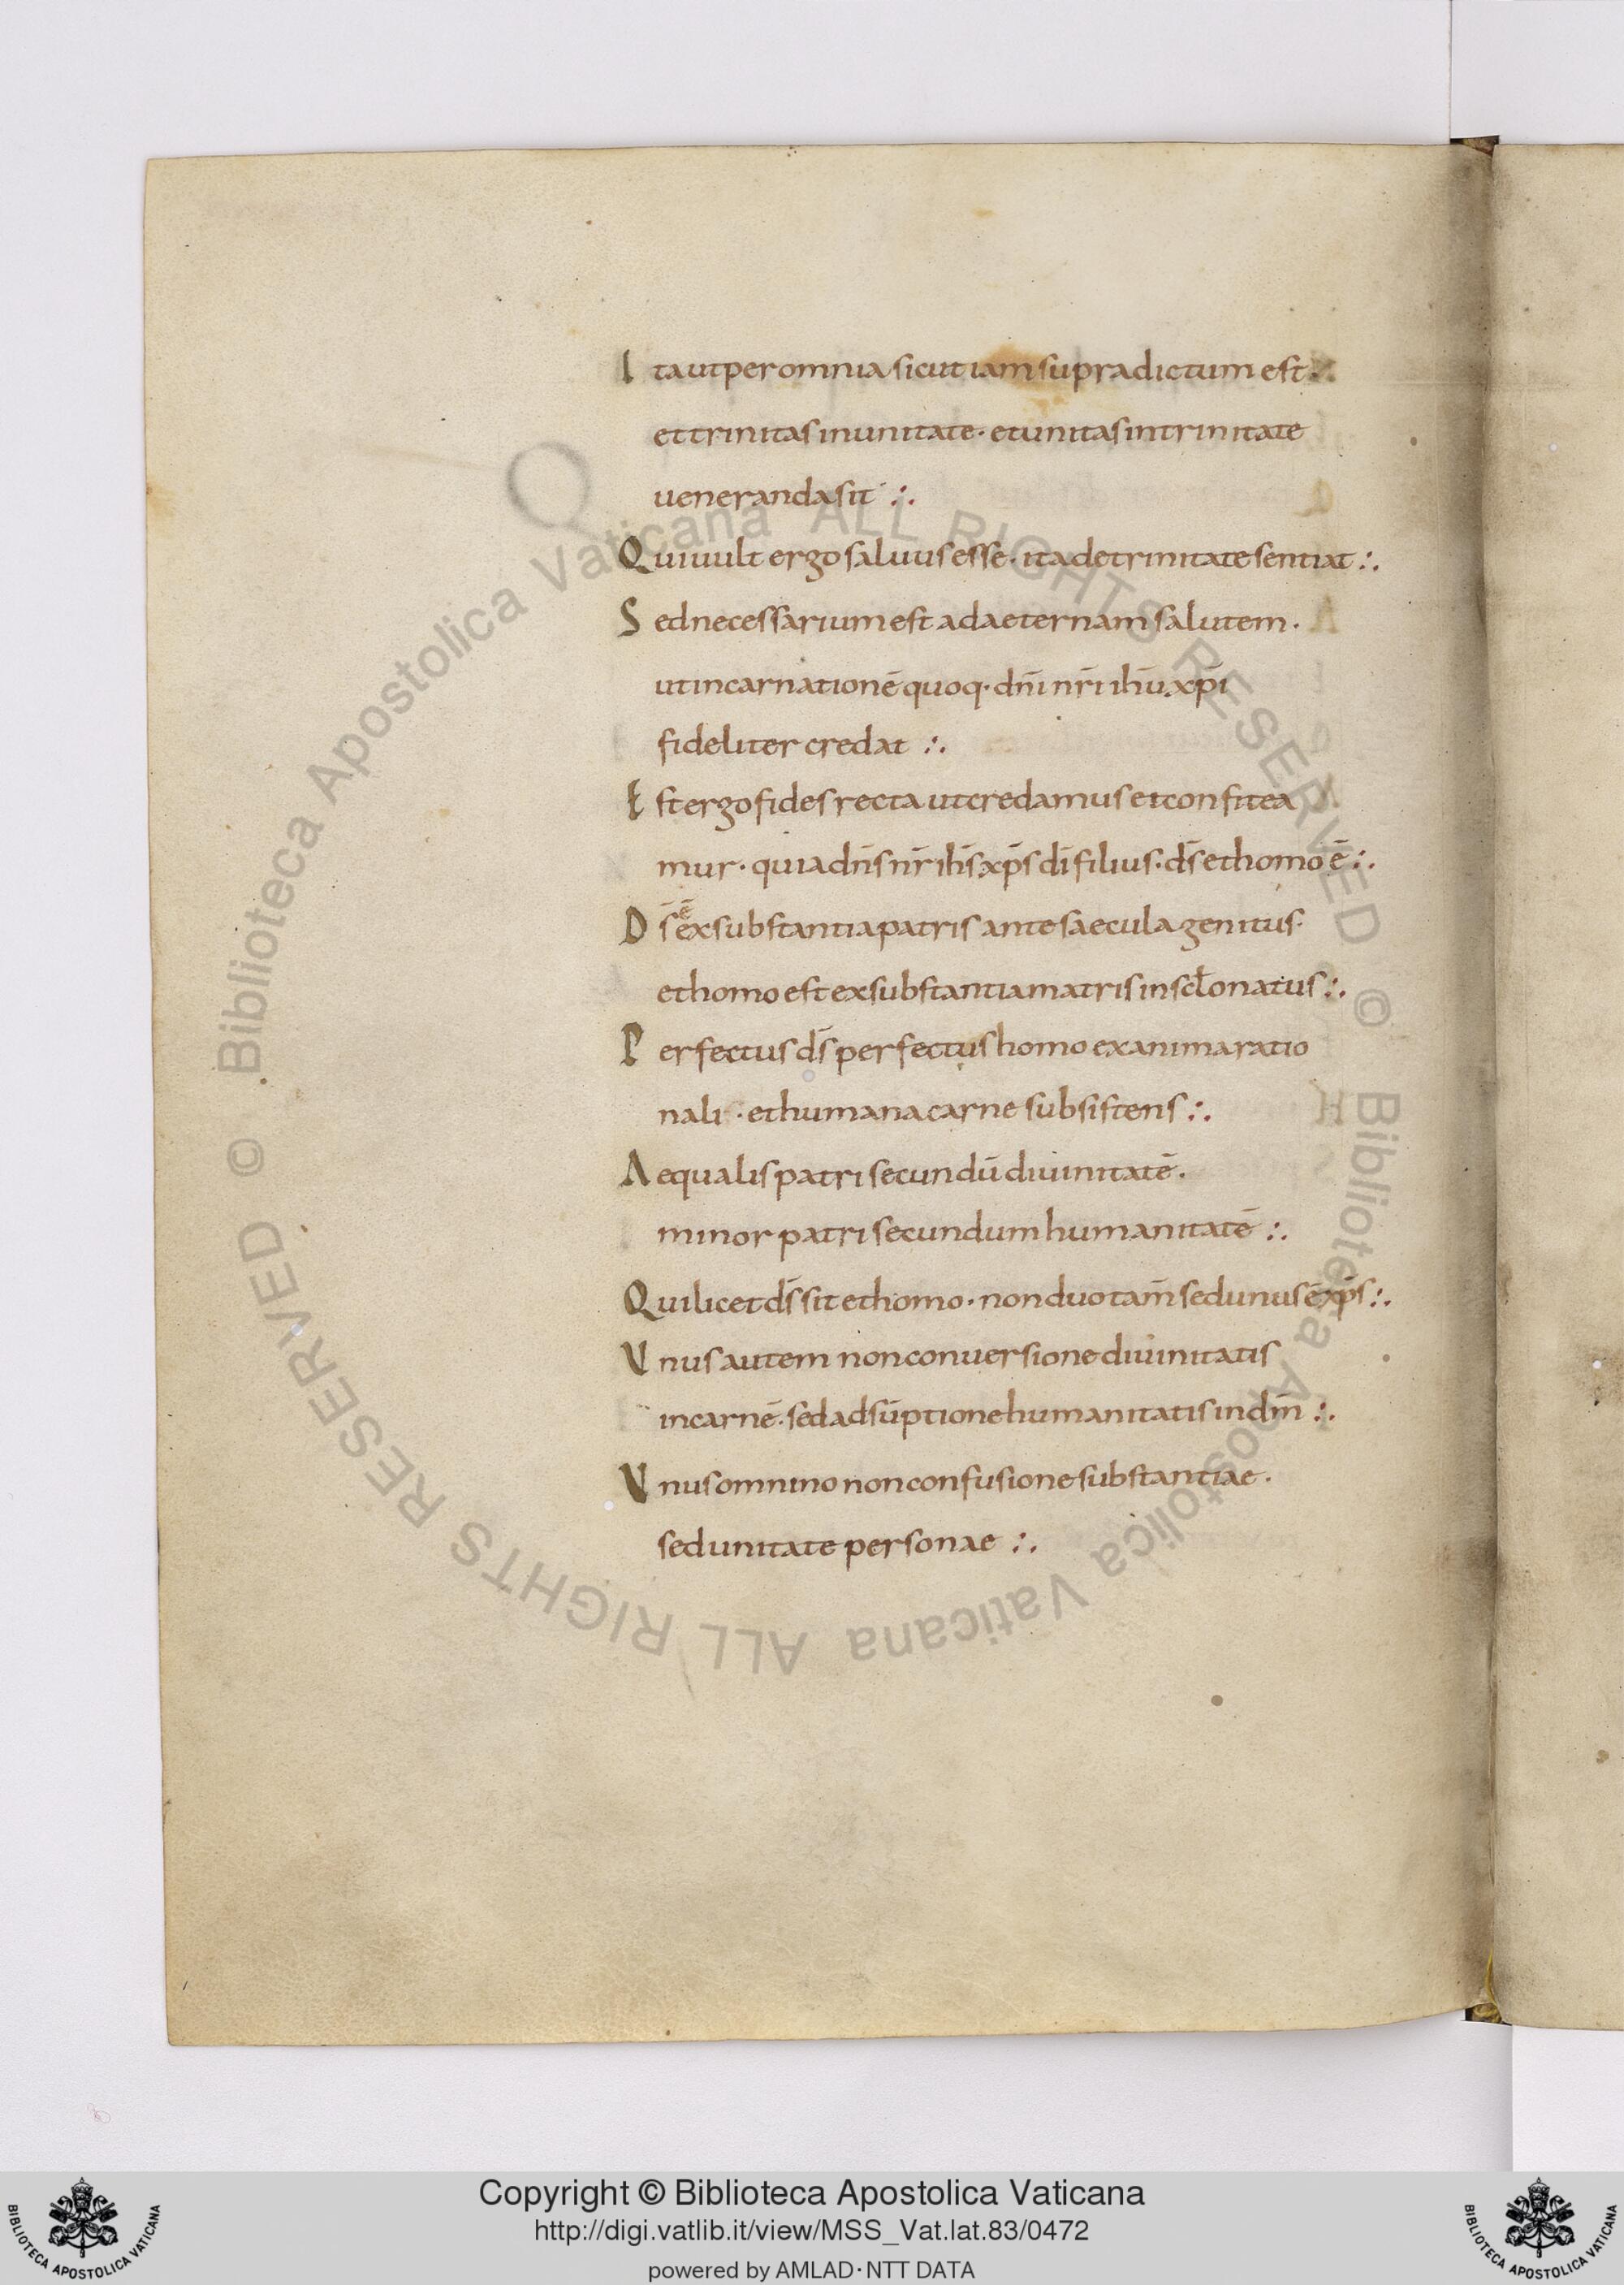 Ita ut per omnia sicut iam supra dictum est ∴
et trinitas in unitate · et unitas in trinitate
ueneranda sit ∴
Qui uult ergo saluus esse · ita de trinitate sentiat ∴
Sed necessarium est ad aeternam salutem ·
ut incarnationē quoq · dn̄i nr̄i ih̄u xp̄i
fideliter credat ∴
Est ergo fides recta ut credamus et confitea
mur · quia dn̄s nr̄ ih̄s xp̄s dī filius · ds̄ et homo ē ∴
Ds̄ ē ex substantia patris ante saecula genitus ·
et homo est ex substantia matris in sclo natus ∴
Perfectus ds̄ perfectus homo ex anima ratio
nali · et humana carne subsistens ∴
Aequalis patri secundū diuinitatē ·
minor patri secundum humanitatē ∴
Qui licet ds̄ sit et homo · non duo tam̄ sed unus ē xp̄s ∴
Unus autem non conuersione diuinitatis
in carnē · sed adsūptione humanitatis in dm̄ ∴
Unus omnino non confusione substantiae ·
sed unitate personae ∴
© Biblioteca Apostolica Vaticana ALL RIGHTS RESERVED
© Biblioteca Apostolica Vaticana ALL RIGHTS RESERVED
Copyright © Biblioteca Apostolica Vaticana
http://digi.vatlib.it/view/MSS_Vat.lat.83/0472
powered by AMLAD·NTT DATA
BIBLIOTECA APOSTOLICA VATICANA
BIBLIOTECA APOSTOLICA VATICANA